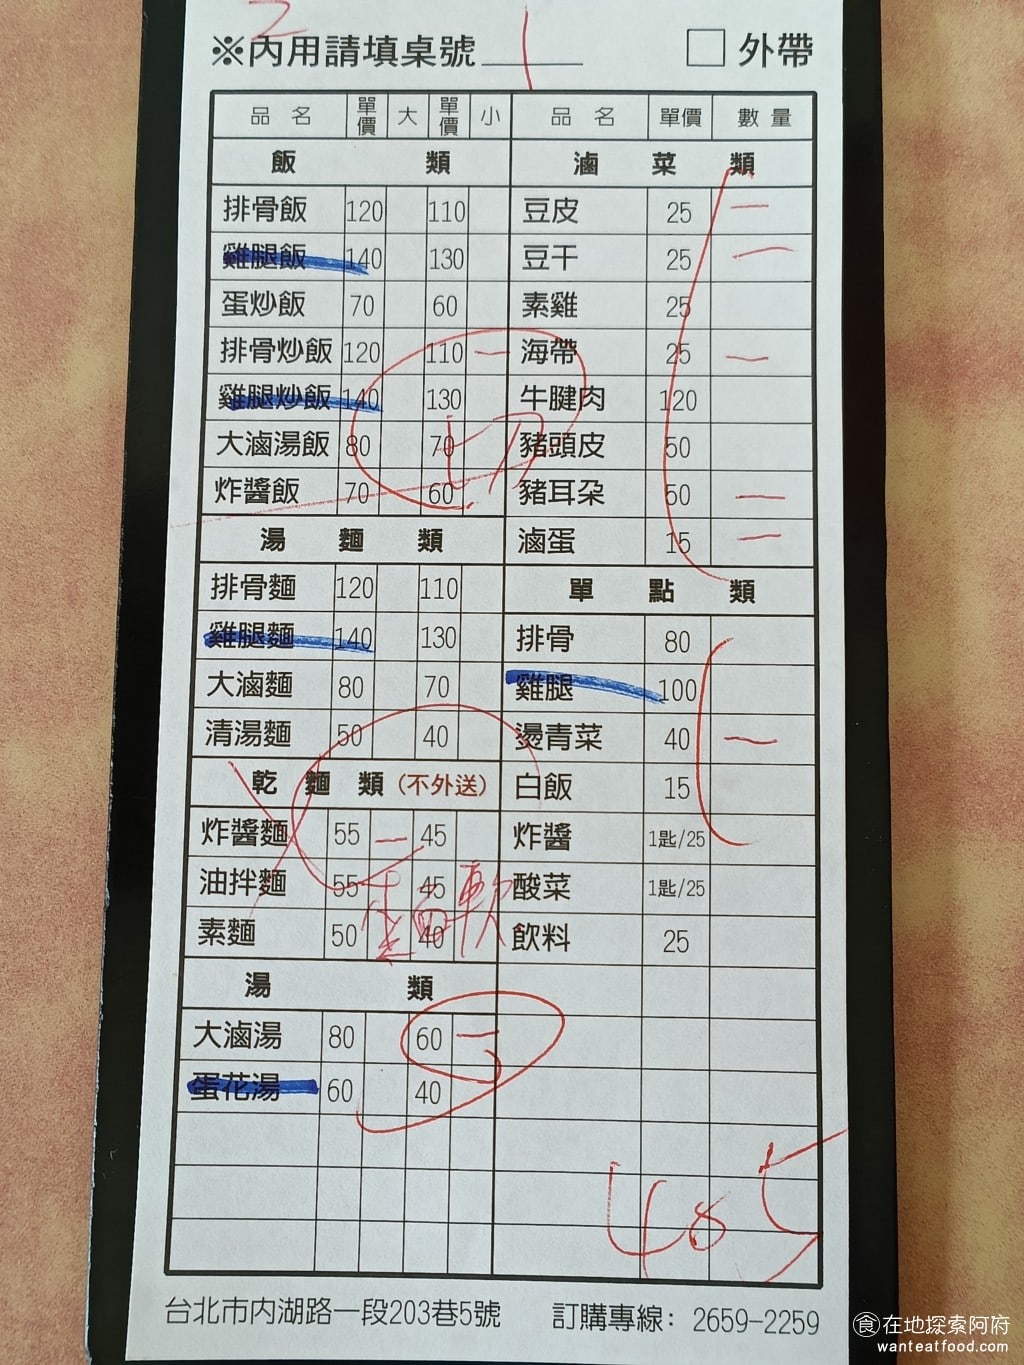 2
※內用請填桌號 1 □ 外帶
品名 單價 大 單價 小 品名 單價 數量
飯類 滷菜類
排骨飯 120 110 豆皮 25 一
雞腿飯 140 130 豆干 25 一
蛋炒飯 70 60 素雞 25
排骨炒飯 120 110 一 海帶 25 一
雞腿炒飯 140 130 牛腱肉 120
大滷湯飯 80 70 豬頭皮 50
炸醬飯 70 60 豬耳朵 50 一
湯麵類 滷蛋 15 一
排骨麵 120 110 單點類
雞腿麵 140 130 排骨 80
大滷麵 80 70 雞腿 100
清湯麵 50 40 燙青菜 40 一
乾麵類(不外送) 白飯 15
炸醬麵 55 一 45 炸醬 1匙/25
油拌麵 55 45 酸菜 1匙/25
素麵 50 40 飲料 25
湯類
大滷湯 80 60 一
蛋花湯 60 40
485
台北市內湖路一段203巷5號 訂購專線: 2659-2259
食 在地探索阿府
wanteatfood.com